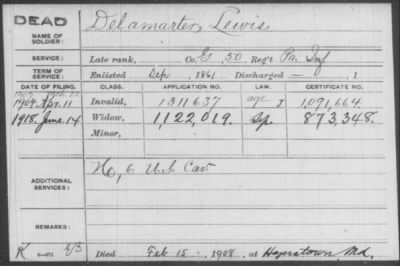 DEAD
NAME OF SOLDIER:
Delamarter, Lewis
SERVICE:
Late rank, Co. G, 50 Reg't Pa. Inf
TERM OF SERVICE:
Enlisted Sep 1861 Discharged — , 1
DATE OF FILING. CLASS. APPLICATION NO. LAW. CERTIFICATE NO.
1904 Apr. 11 Invalid, 1311637 age J 1,091,664.
1918. June 14 Widow, 1,122,019. 873,348.
Minor,
ADDITIONAL SERVICES:
6 U.S. Cav
REMARKS:
K
Died Feb 15 -, 1908, at Hagerstown, Md.